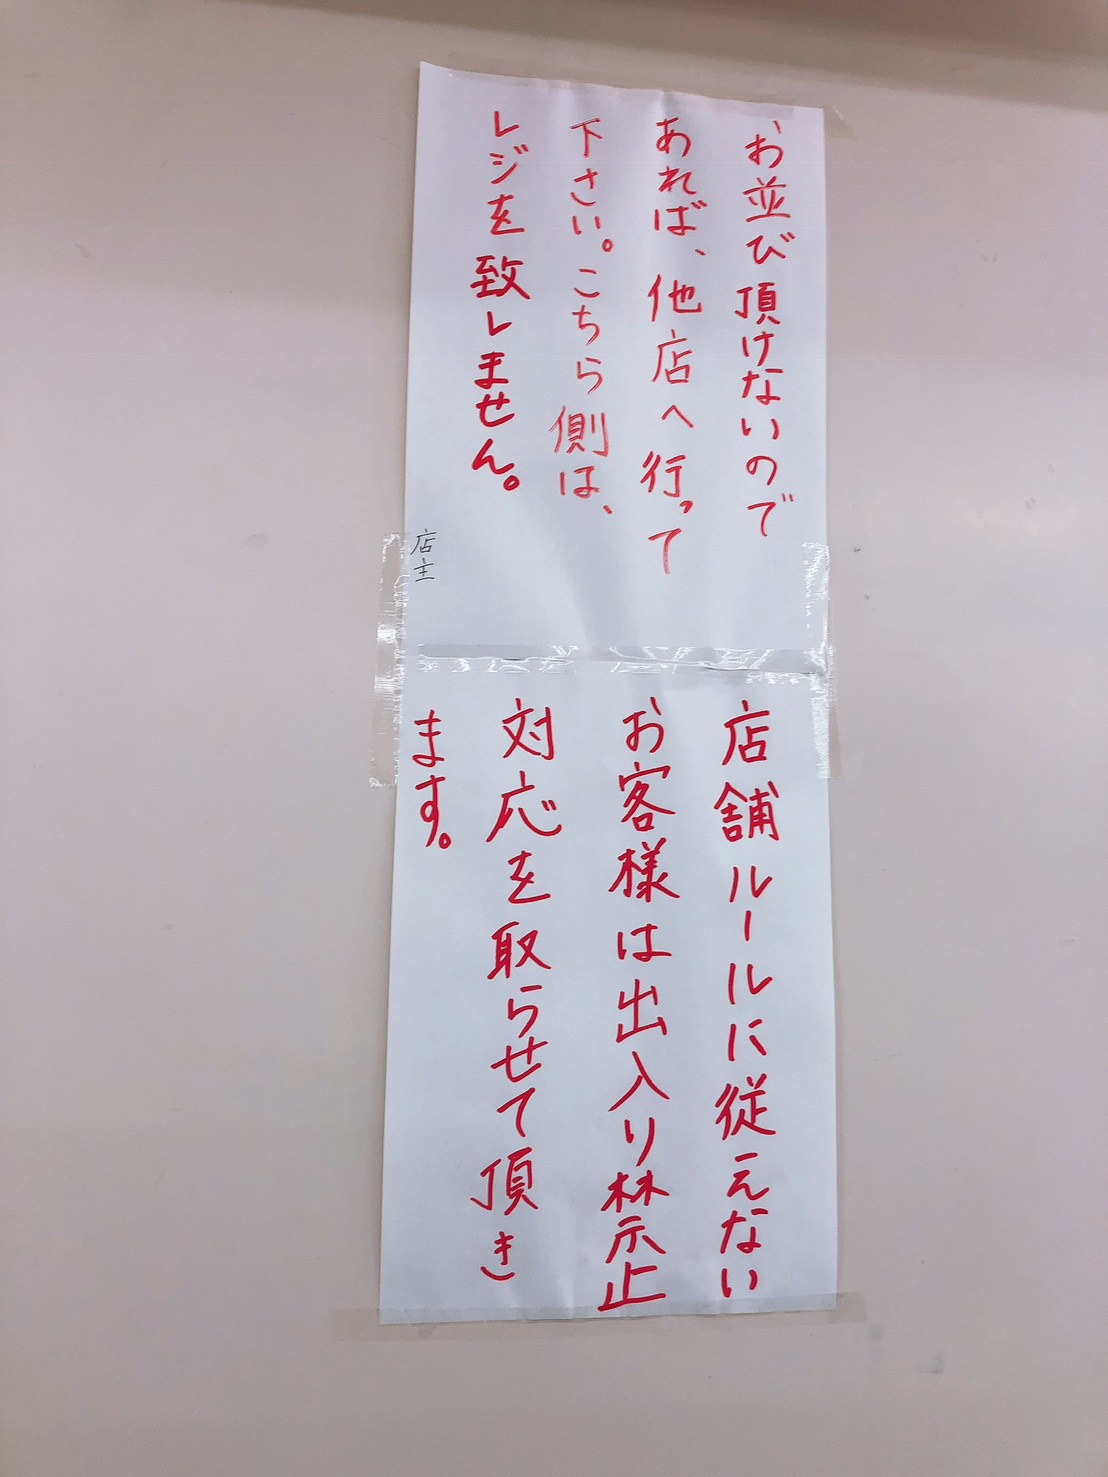 お並び頂けないので
あれば、他店へ行って
下さい。こちら側は、
レジを致しません。
店主
店舗ルールに従えない
お客様は出入り禁止
対応を取らせて頂き
ます。